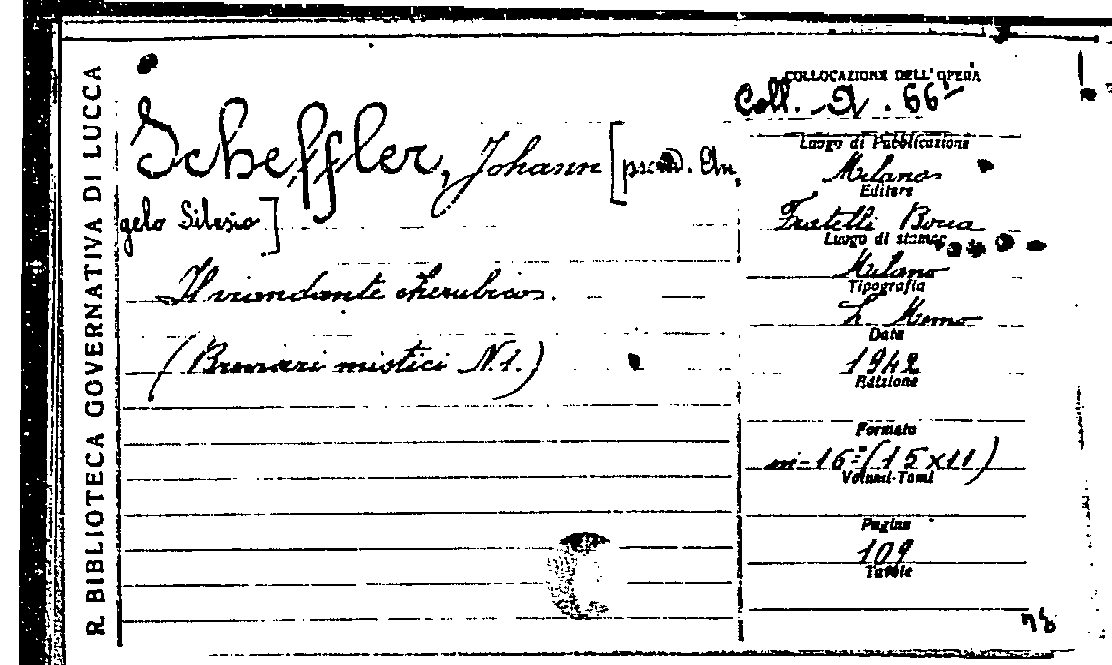 R. BIBLIOTECA GOVERNATIVA DI LUCCA
Scheffler, Johann [pseud. An
gelo Silesio]
Il viandante cherubico.
(Breviari mistici N. 1.)
COLLOCAZIONE DELL'OPERA
Coll. A. 66
Luogo di Pubblicazione
Milano
Editore
Fratelli Bocca
Luogo di stampa
Milano
Tipografia
Memo
Data
1942
Edizione
Formato
in-16° (15x11)
Volumi-Tomi
Pagine
109
Tavole